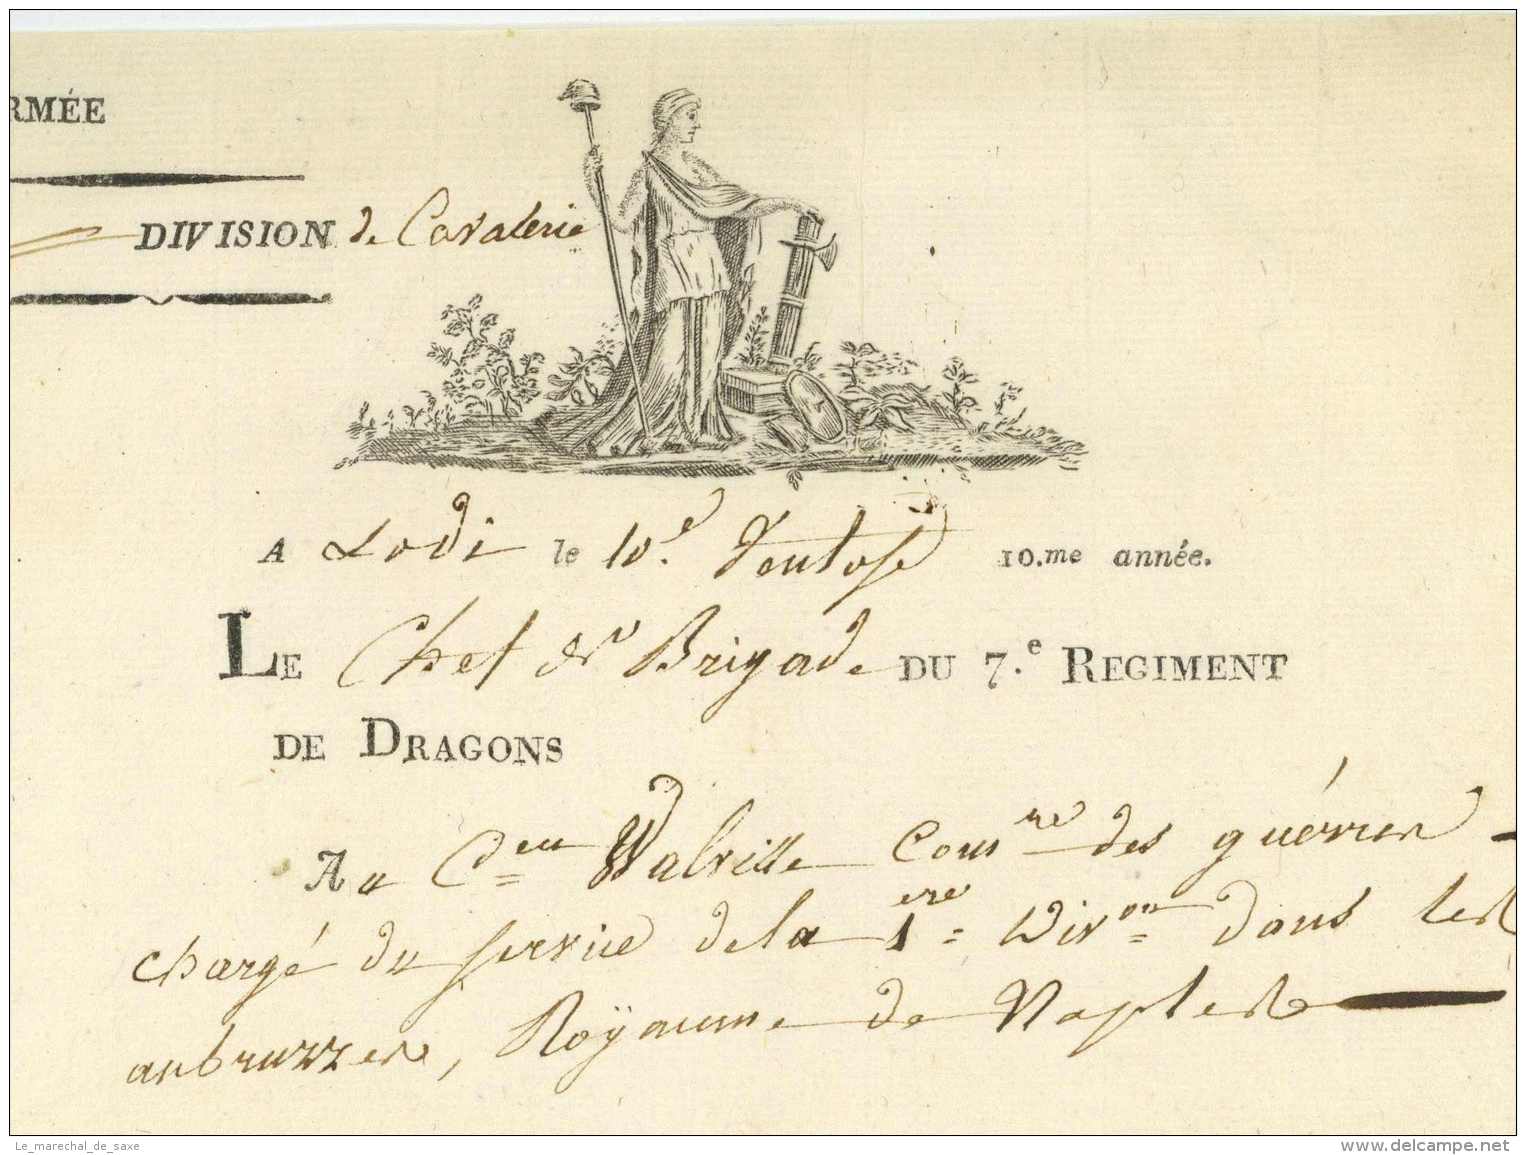 RMÉE
DIVISION de Cavalerie
A Lodi le 10.e Ventose 10.me année.
LE Chef de Brigade DU 7.e REGIMENT
DE DRAGONS
Au C.en Walville Comre des guerres
chargé du service de la 1ere Divon dans les
aubruzzes, Royaume de Naples
Le_marechal_de_saxe
www.delcampe.net